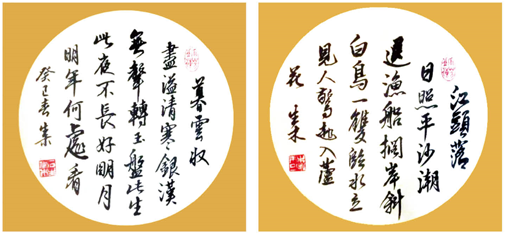 暮雲收
盡溢清寒銀漢
無聲轉玉盤此生
此夜不長好明月
明年何處看
癸巳春集
江頭落
日照平沙潮
退漁船擱岸斜
白鳥一雙臨水立
見人驚起入蘆
花